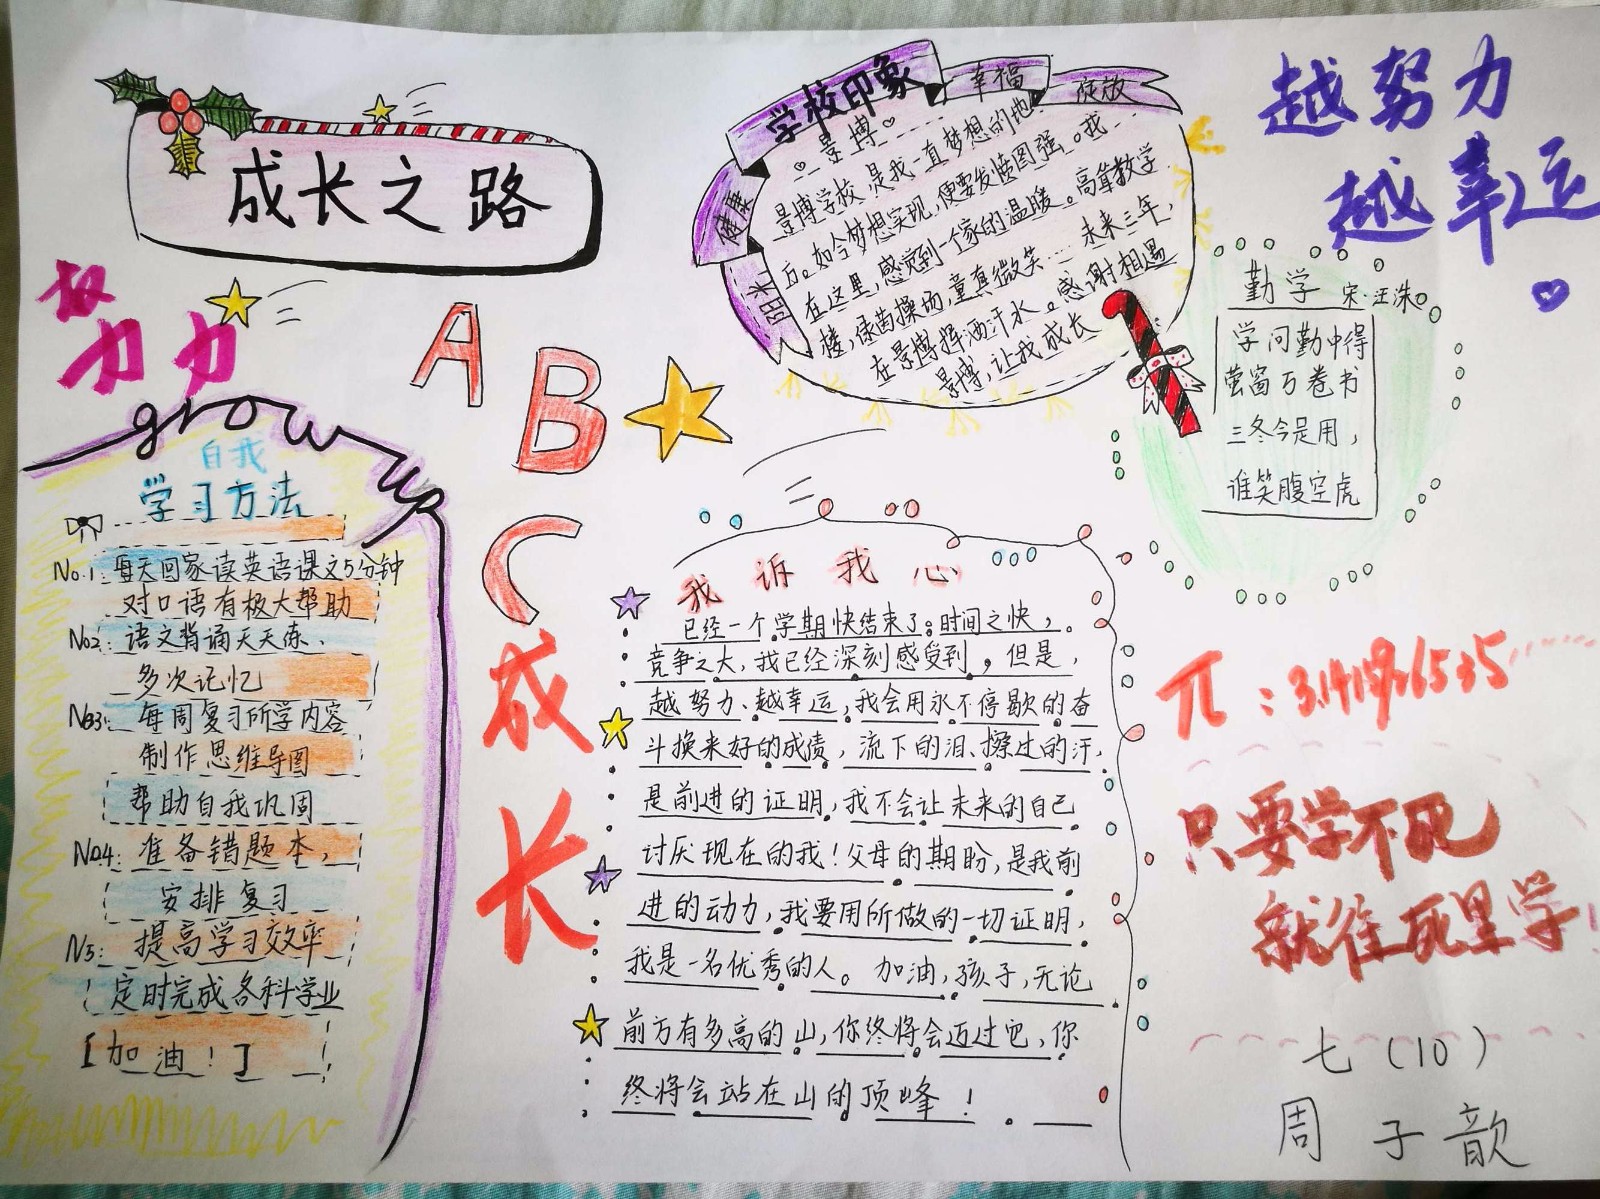 成长之路
努力
grow up
自我
学习方法
No.1: 每天回家读英语课文5分钟
对口语有极大帮助
No2: 语文背诵天天练、
多次记忆
No3: 每周复习所学内容
制作思维导图
帮助自我巩固
No.4: 准备错题本，
安排复习
N5: 提高学习效率
定时完成各科学业
【加油！】
A
B
C
成
长
学校印象
幸福
绽放
健康
阳光
景博
景博学校，是我一直梦想的地
方。如今梦想实现，便要发愤图强。我
在这里，感觉到一个家的温暖。高耸教学
楼，绿茵操场，童真微笑……未来三年，
在景博挥洒汗水。感谢相遇
景博，让我成长
越努力
越幸运
勤学 宋·汪洙
学问勤中得
萤窗万卷书
三冬今足用，
谁笑腹空虚
我诉我心
已经一个学期快结束了。时间之快，
竞争之大，我已经深刻感受到，但是，
越努力、越幸运，我会用永不停歇的奋
斗换来好的成绩，流下的泪、擦过的汗，
是前进的证明，我不会让未来的自己
讨厌现在的我！父母的期盼，是我前
进的动力，我要用所做的一切证明，
我是一名优秀的人。加油，孩子，无论
前方有多高的山，你终将会迈过它，你
终将会站在山的顶峰！
只要学不死
就往死里学！
七（10）
周子歆